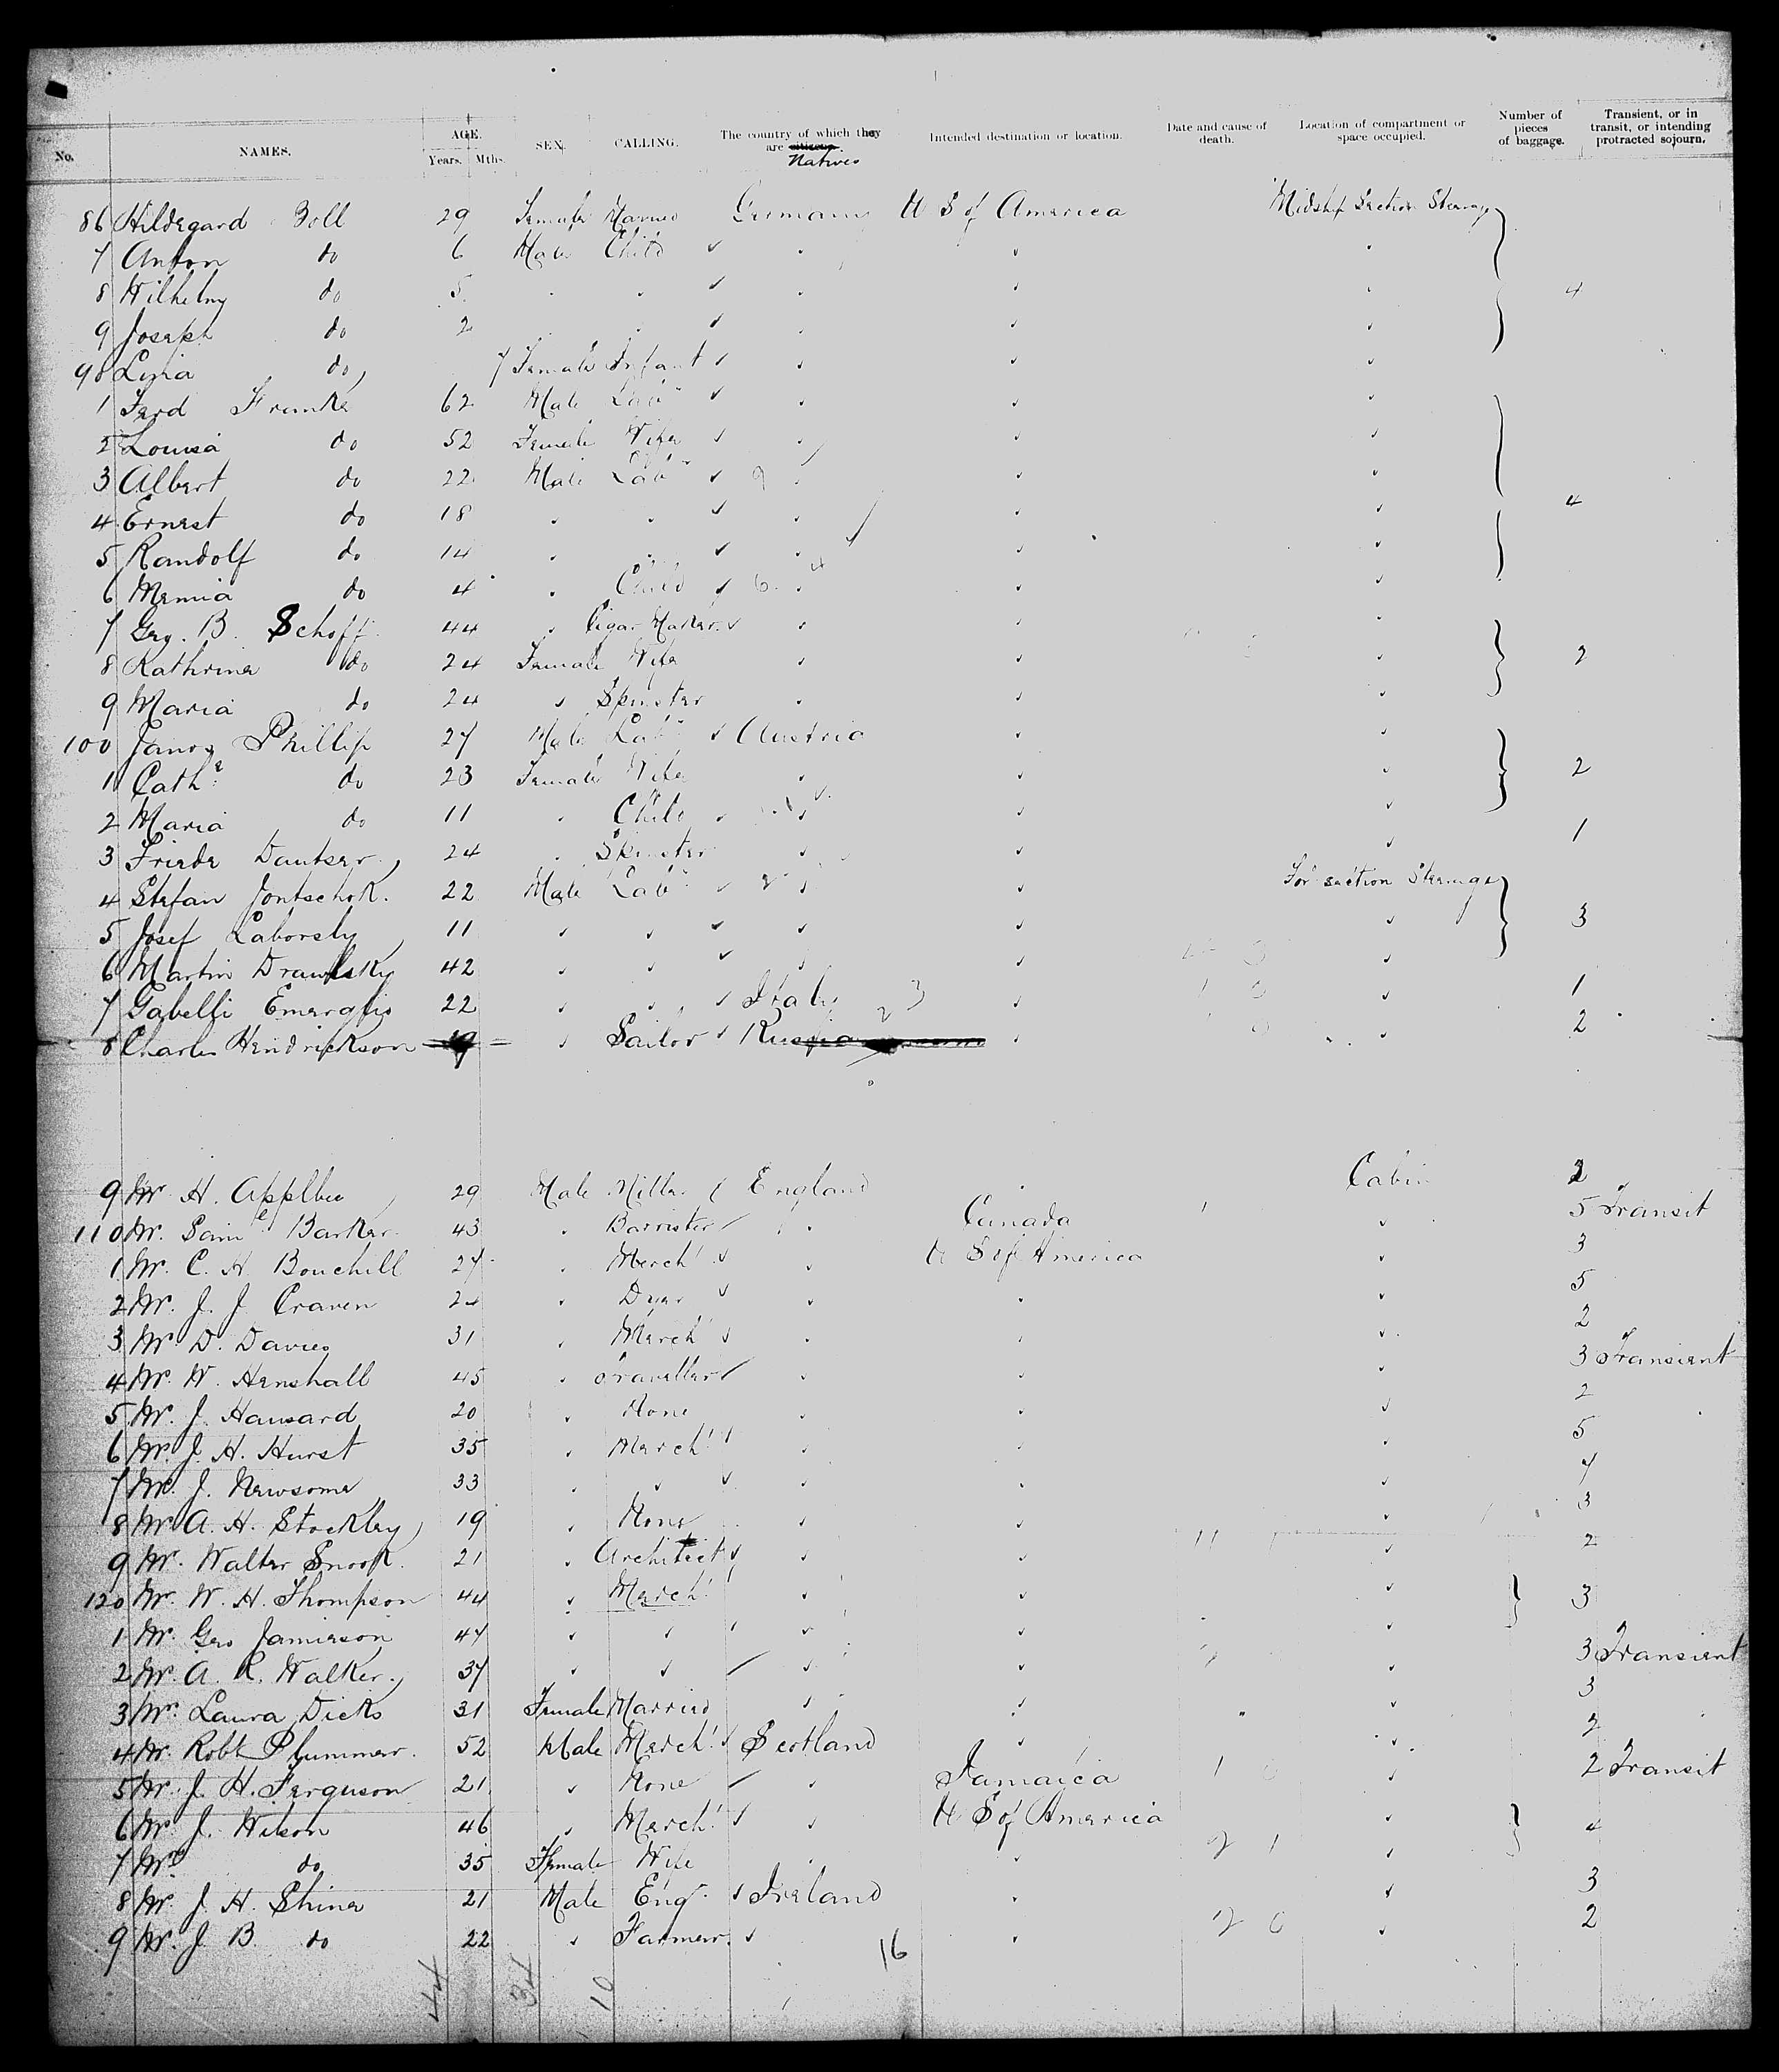 No. NAMES. AGE. Years. Mths. SEX. CALLING. The country of which they are citizens. Natives Intended destination or location. Date and cause of death. Location of compartment or space occupied. Number of pieces of baggage. Transient, or in transit, or intending protracted sojourn.
86 Hildegard Boll 29 Female Married Germany U S of America Midship Section Steerage
7 Anton do 6 Male Child
8 Wilhelm do 5 4
9 Joseph do 2
90 Lina do 7 Female Infant
1 Ferd Franke 62 Male Labr
2 Louisa do 52 Female Wife
3 Albert do 22 Male Labr
4 Ernest do 18 4
5 Randolf do 14
6 Memia do 4 Child
7 Geo. B. Schoff 44 Cigar Maker
8 Kathrina do 24 Female Wife 2
9 Maria do 24 Spinster
100 Janos Phillip 27 Male Labr Austria
1 Cathe do 23 Female Wife 2
2 Maria do 11 Child
3 Frieda Dautser 24 Spinster 1
4 Stefan Jontschok. 22 Male Labr For section Steerage
5 Josef Laborsly 11 3
6 Martin Drawlsky 42
7 Gabelli Emeraglio 22 Italy 1
8 Charles Hendrickson 19 Sailor Russia 2
9 Mr. H. Applbee 29 Male Miller England Cabin 2
110 Mr. Saml Barker 43 Barrister Canada 5 Transit
1 Mr. C. H. Bouchill 27 Mercht U S of America 3
2 Mr. J. J. Craven 24 Dyer 5
3 Mr. D. Davies 31 Mercht 2
4 Mr. W. Henshall 45 Traveller 3 Transient
5 Mr. J. Hansard 20 None 2
6 Mr. J. H. Hurst 35 Mercht 5
7 Mr. J. Newsome 33 7
8 Mr. A. H. Stockley 19 None 3
9 Mr. Walter Snook. 21 Architect 2
120 Mr. W. H. Thompson 44 Mercht 3
1 Mr. Geo Jamieson 47
2 Mr. A. R. Walker. 37 3 Transient
3 Mrs. Laura Dicks 31 Female Married 3
4 Mr. Robt Plummer. 52 Male Mercht Scotland 2
5 Mr. J. H. Ferguson 21 None Jamaica 2 Transit
6 Mr. J. Wilson 46 Mercht U S of America 4
7 Mrs do 35 Female Wife
8 Mr. J. H. Shine 21 Male Engr Ireland 3
9 Mr. J. B. do 22 Farmer. 2
16
44 34 10